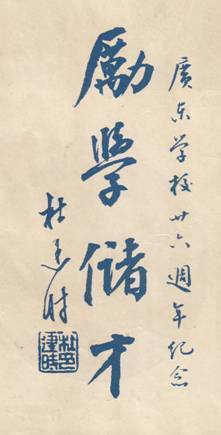 廣东学校卅六週年纪念
勵學儲才
杜建时
杜建時